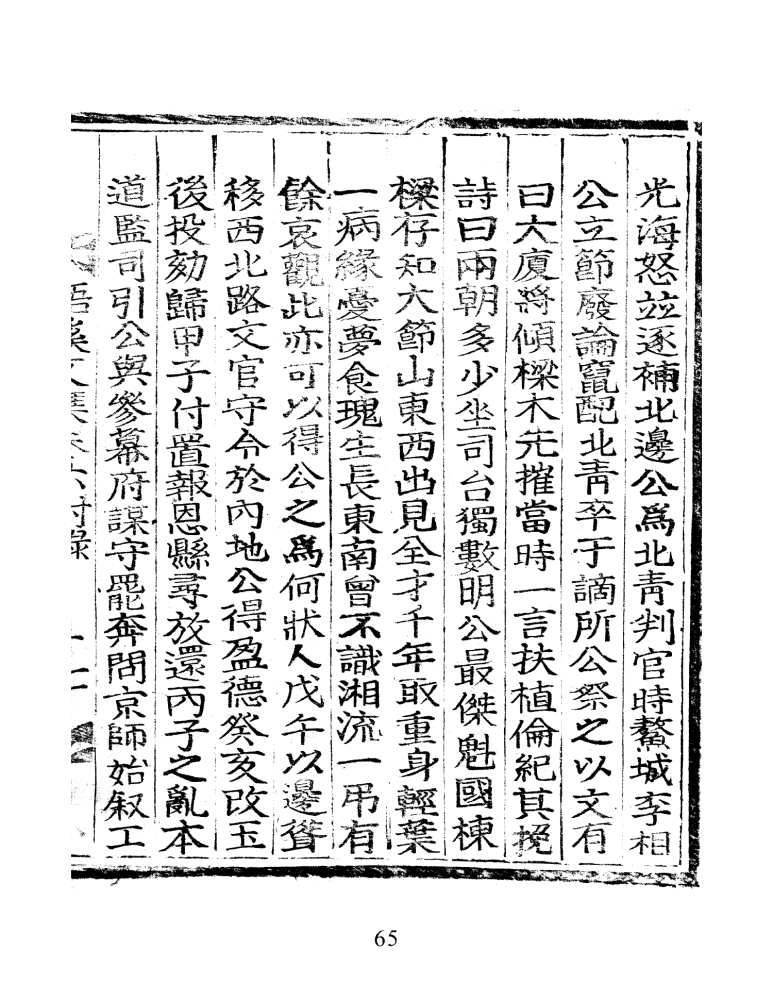 光海怒並逐補北邊公爲北靑判官時鰲城李相
公立節廢論竄配北靑卒于謫所公祭之以文有
曰大廈將傾樑木先摧當時一言扶植倫紀其挽
詩曰兩朝多少坐司台獨數明公最傑魁國棟
樑存知大節山東西出見全才千年取重身輕葉
一病緣憂夢食瑰生長東南曾不識湘流一吊有
餘哀觀此亦可以得公之爲何狀人戊午以邊聳
移西北路文官守令於內地公得盈德癸亥改玉
後投劾歸甲子付置報恩縣尋放還丙子之亂本
道監司引公與參幕府謀守罷奔問京師始叙工
梧溪文集卷六附錄
65